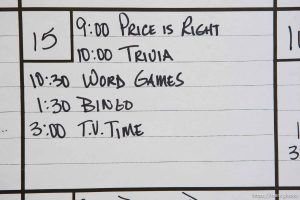 15
9:00 PRICE IS RIGHT
10:00 TRIVIA
10:30 WORD GAMES
1:30 BINGO
3:00 T.V. TIME